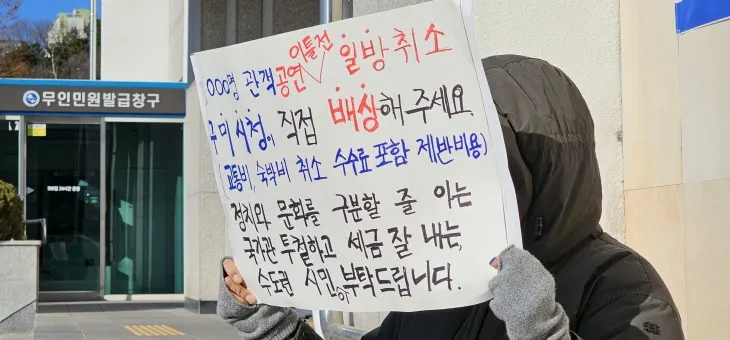 무인민원발급창구
000명 관객 공연 이틀전 일방취소
구미시청이 직접 배상해 주세요.
(교통비, 숙박비 취소 수수료 포함 제반비용)
정치와 문화를 구분할 줄 아는
국가관 투철하고 세금 잘 내는,
수도권 시민이 부탁드립니다.